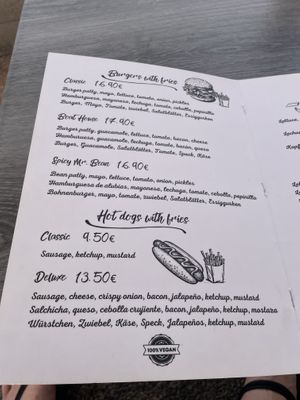 Burgers with fries
Classic 16.90€
Burger patty, mayo, lettuce, tomato, onion, pickles
Hamburguesa, mayonesa, lechuga, tomate, cebolla, pepinillo
Burger, Mayo, Tomate, zwiebel, Salatblätter, Essiggurken
Boat House 17.90€
Burger patty, guacamole, lettuce, tomato, bacon, cheese
Hamburguesa, guacamole, lechuga, tomate, bacón, queso
Burger, Guacamole, Salatblätter, Tomate, Speck, Käse
Spicy Mr. Bean 16.90€
Bean patty, mayo, lettuce, tomato, onion, pickles
Hamburguesa de alubias, mayonesa, lechuga, tomate, cebolla, pepinillo
Bohnenburger, mayo, tomate, zwiebel, Salatblätter, Essiggurken
Hot dogs with fries
Classic 9.50€
Sausage, ketchup, mustard
Deluxe 13.50€
Sausage, cheese, crispy onion, bacon, jalapeño, ketchup, mustard
Salchicha, queso, cebolla crujiente, bacon, jalapeño, ketchup, mostaza
Würstchen, Zwiebel, Käse, Speck, Jalapeños, ketchup, mustard
100% VEGAN